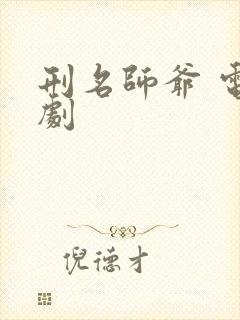 刑名師爺 電
劇
倪德才